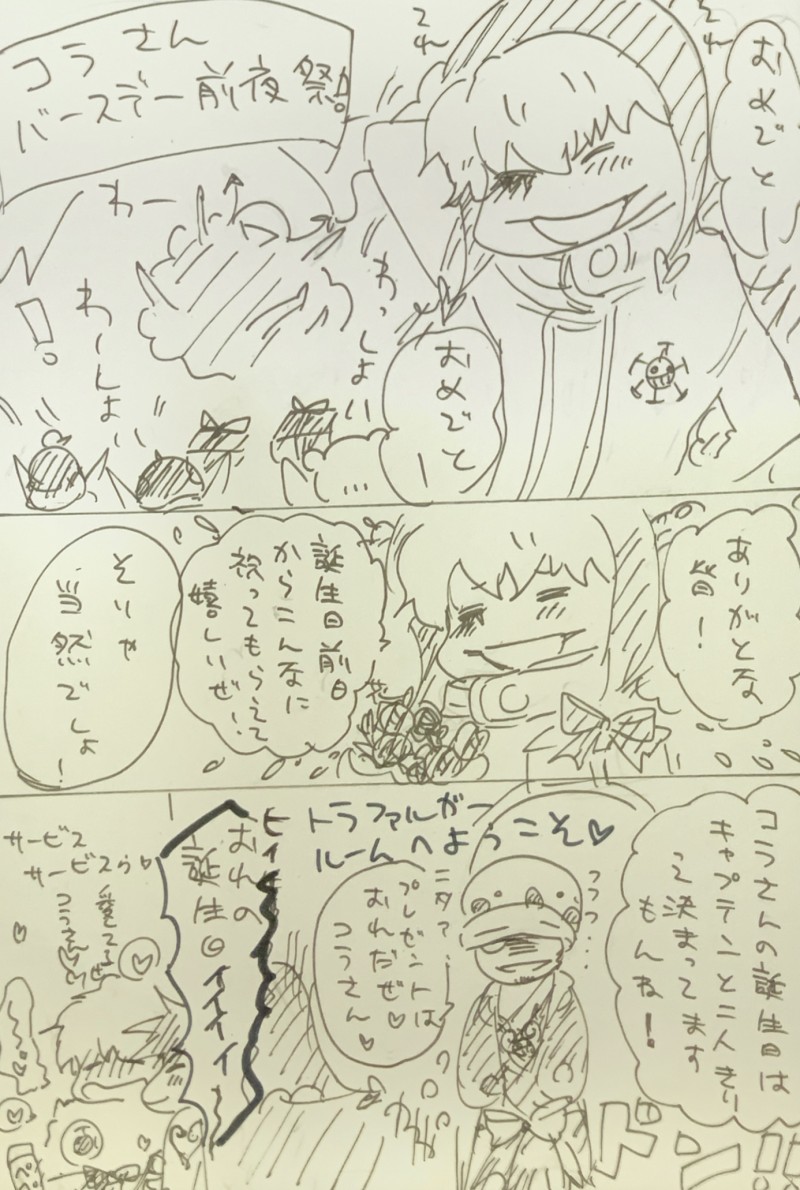 おめでとー
それ
それ
コラさん
バースデー前夜祭!!
わー
わっしょい
わーんしょい
!
おめでとー
…
ありがとな
皆!
誕生日前日
からこんなに
祝ってもらえて
嬉しいぜ…
そりゃ
当然でしょ!
コラさんの誕生日は
キャプテンと二人きり
って決まってます
もんね!
ドン!!
トラファルガー
ルームへようこそ♡
フフフ…
ニタァ…
プレゼントは
おれだぜ♡
コラさん♡
ヒィ
おれの
誕生日イイイイ
サービス
サービスぅ♡
愛てるぜ
コラさん